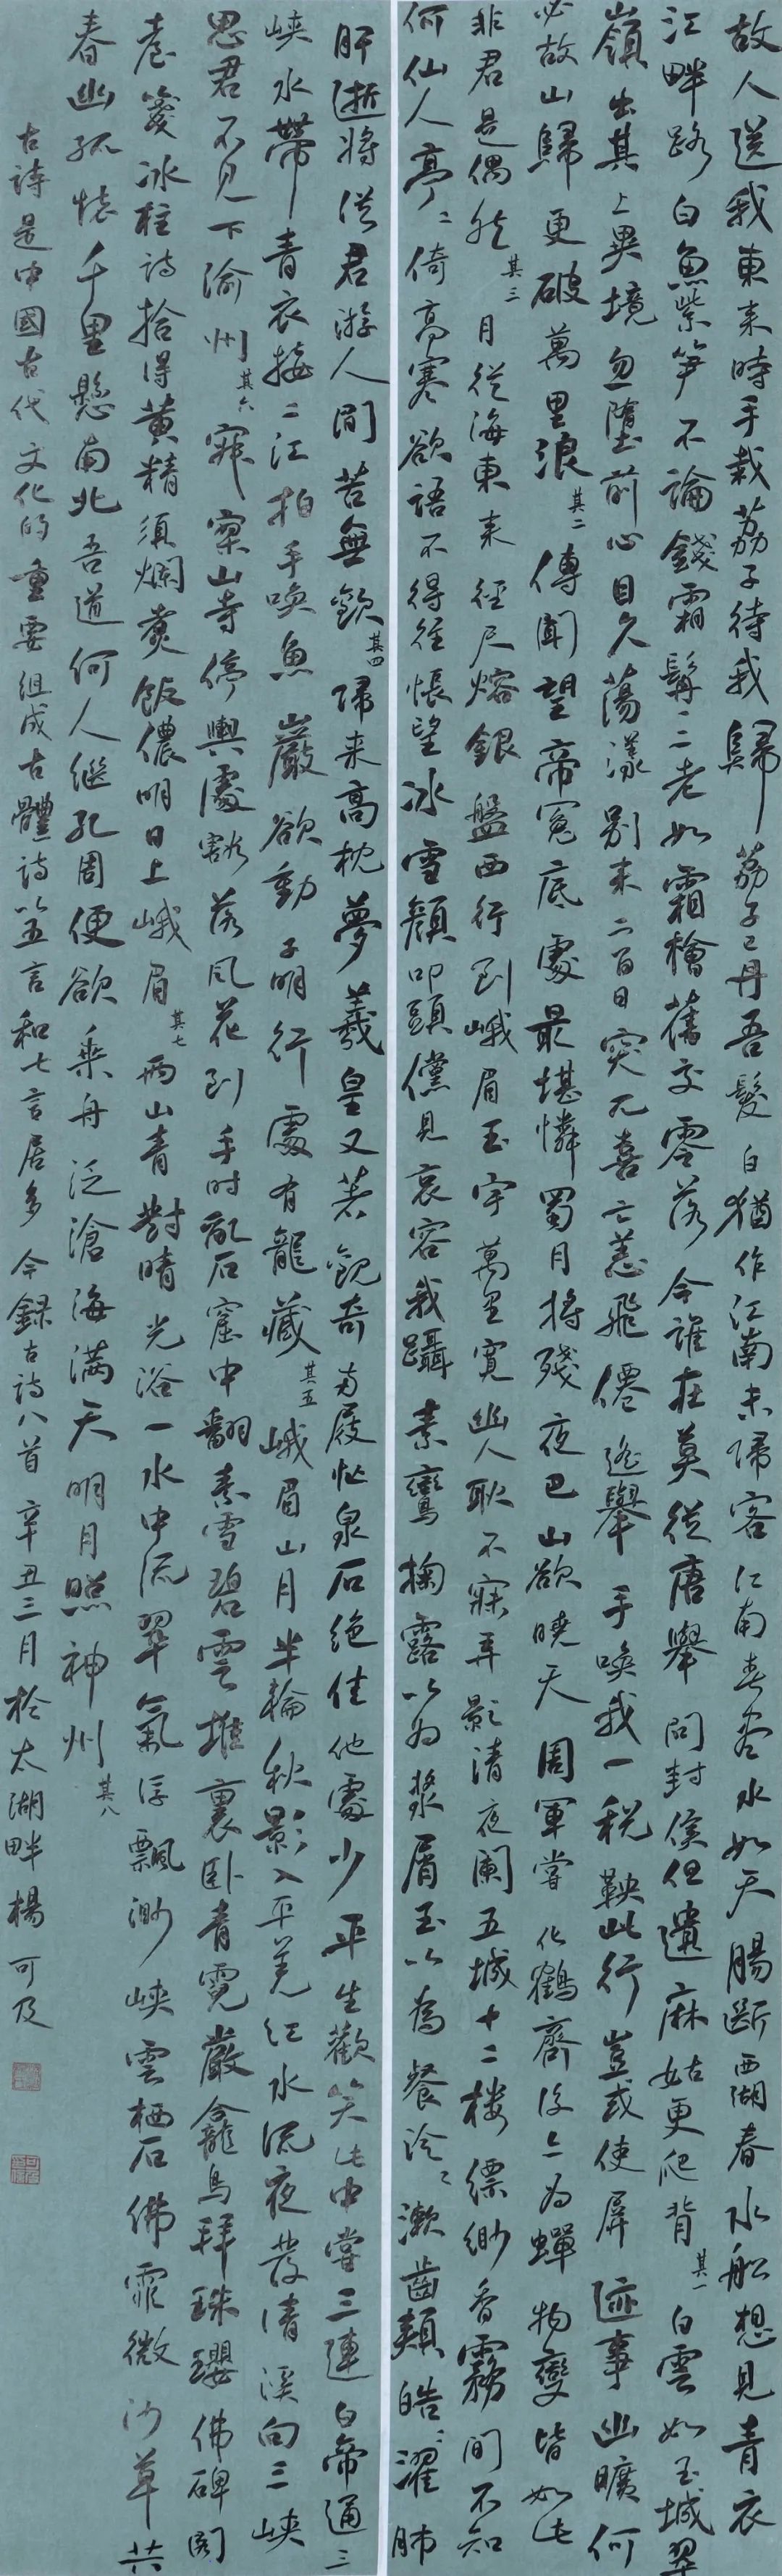 故人送我東來時手栽荔子待我歸荔子已丹吾髮白猶作江南未歸客江南春盡水如天腸斷西湖春水船想見青衣
江畔路白魚紫笋不論錢霜髯二老如霜檜舊交零落今誰在莫從唐舉問封侯但遣麻姑更爬背其一白雲如玉城翠
嶺出其上異境忽墮前心目久蕩漾別來二百日突兀喜亡恙飛僊遙舉手喚我一稅鞅此行豈或使屏迹事幽曠何
必故山歸更破萬里浪其二傳聞望帝冤底處最堪憐蜀月將殘夜巴山欲曉天周軍嘗化鶴齊后亦為蟬物變皆如此
非君是偶然其三月從海東來徑尺熔銀盤西行到峨眉玉宇萬里寬幽人耿不寐弄影清夜闌五城十二樓縹緲香霧間不知
何仙人亭二倚高寒欲語不得往悵望冰雪顏叩頭儻見哀容我躡素鸞掬露以為漿屑玉以為餐泠泠漱齒頰皓皓濯肺
肝逝將從君游人間苦無歡其四歸來高枕夢羲皇又著觀奇兩屐忙泉石絕佳他處少平生歡笑此中嘗三連白帝通三
峽水帶青衣接二江拍手喚魚巖欲動子明行處有龍藏其五峨眉山月半輪秋影入平羌江水流夜發清溪向三峽
思君不見下渝州其六寂寞山寺停輿處豁落風花到手時亂石窟中翻素雪碧雲堆裏卧青霓巖龕鳥拜珠瓔佛碑閣
苔箋冰柱詩拾得黃精須爛煮飯儂明日上峨眉其七兩山青對晴光浴一水中流翠氣浮飄渺峽雲栖石佛霏微沙草共
春幽孤懷千里懸南北吾道何人繼孔周便欲乘舟泛滄海滿天明月照神州其八
古詩是中國古代文化的重要組成古體詩以五言和七言居多今錄古詩八首辛丑三月於太湖畔楊可及